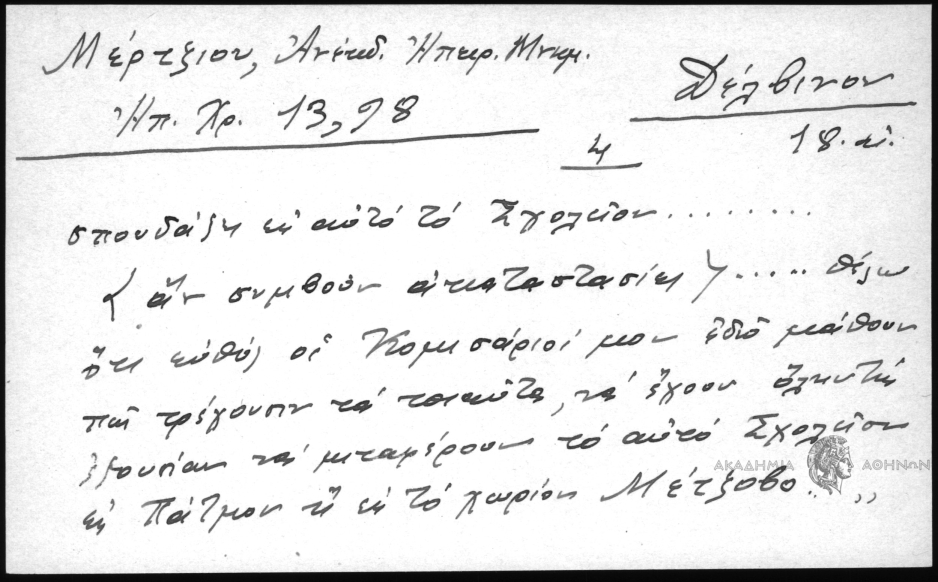 Μέρτζιου, Ἀνέκδ. Ἠπειρ. Μνημ.
Ἠπ. Χρ. 13, 98
Δέλβινον
4
18. αἰ.
σπουδάζῃ εἰς αὐτό τό Σχολεῖον.........
< ἄν συμβοῦν ἀκαταστασίες >..... θέλω
ὅτι εὐθύς οἱ Κομισάριοί μου ἐδιῶ μάθουν
πῶς τρέχουσιν τά τοιαῦτα, νά ἔχουν
ἐξουσίαν νά μεταφέρουν τό αὐτό Σχολεῖον
εἰς Πάτμον ἤ εἰς τό χωρίον Μέτζοβο..,,
ΑΚΑΔΗΜΙΑ ΑΘΗΝΩΝ